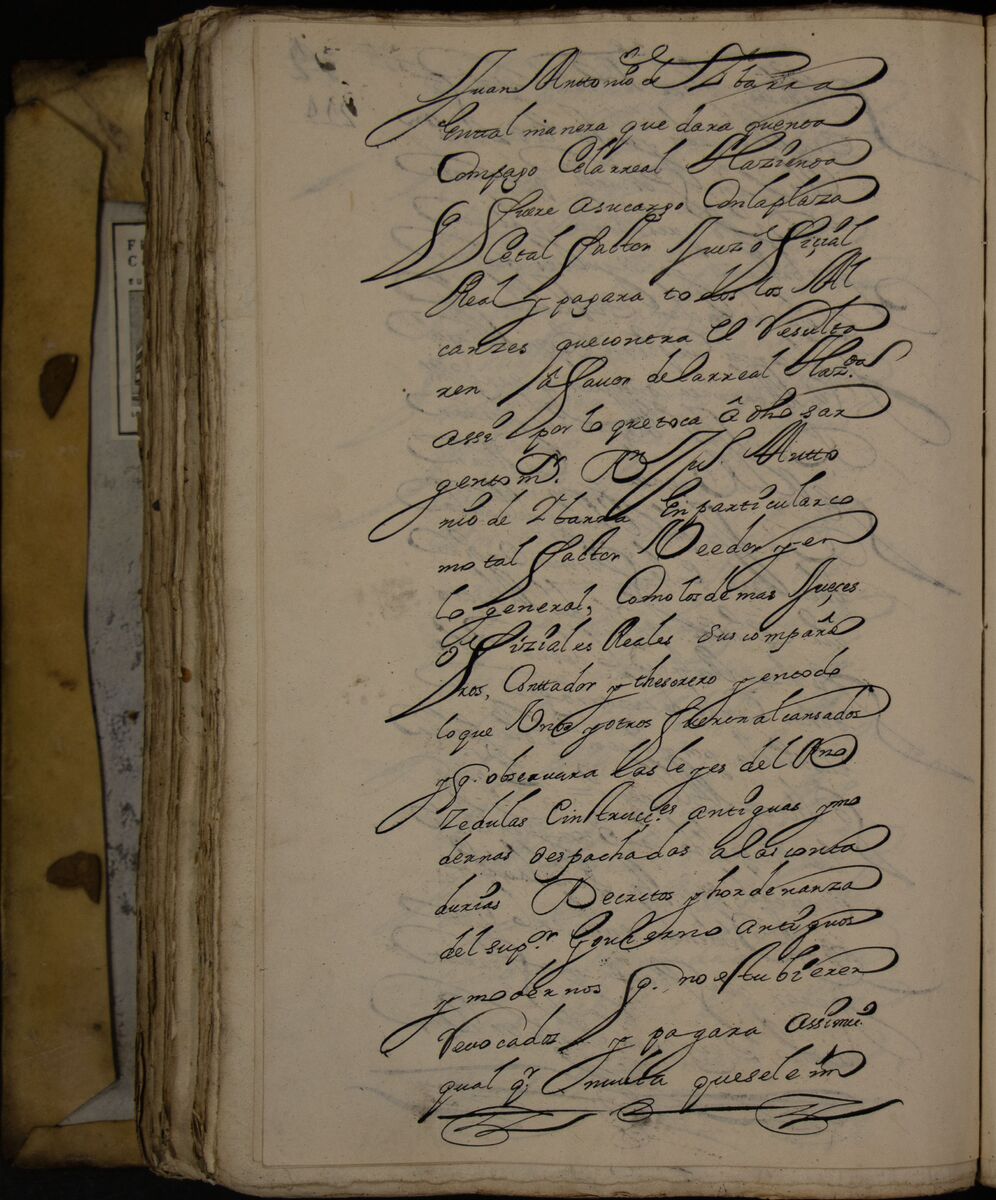 Juan Anttonio de Ybarra
En tal manera que dara quenta
Compago de la rreal Hazienda
q fuere asucargo Conlaplaza
de tal factor Juez ofiçial
Real y pagara todos los Al
canzes quecontra el Resulta
ren â fauor delarreal Hazda.
assi por lo quetoca â dho sar
gento mr. Dn Jun. Antto
nio de Ybarra En particular co
mo tal factor Veedor y en
lo general, Como los demas Jueçes
ofiziales Reales sus compañe
ros, Conttador y thesorero y entodo
lo que Unos y otros fueren alcansados
y q. obseruara las leyes del Rno
Zedulas einstrucçes. antiguas y mo
dernas despachadas alasconta
durias Decretos y hordenanza
del supor Gouierno antiguos
y modernos q. no estubieren
Reuocados y pagara assimis
qual qr multa quesele im